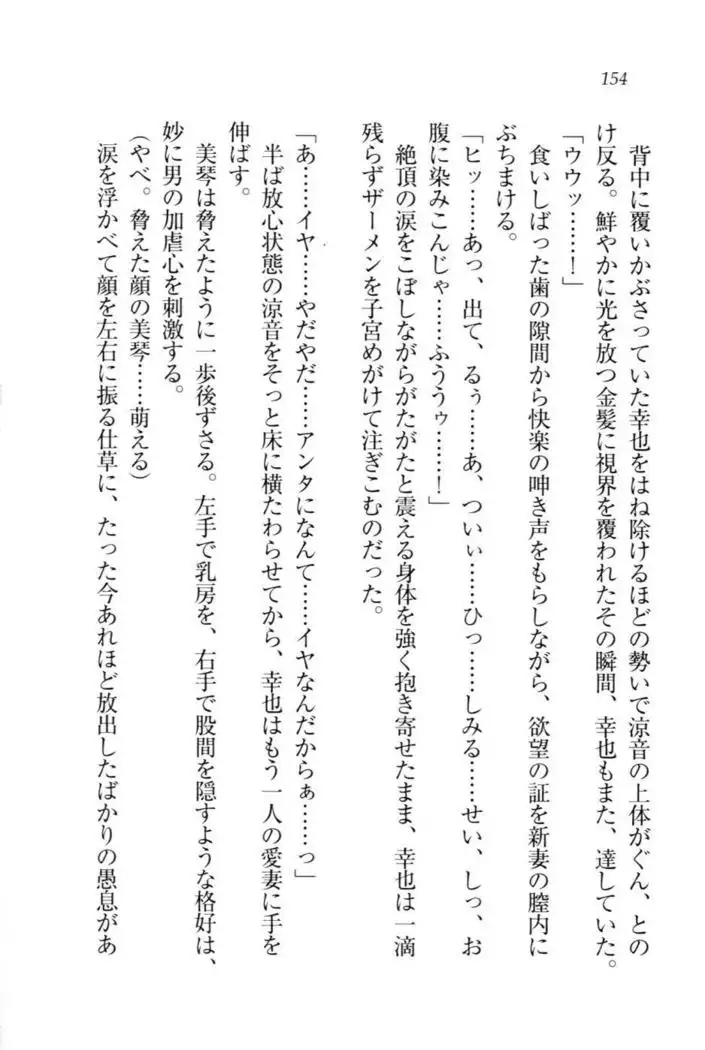 154
背中に覆いかぶさっていた幸也をはね除けるほどの勢いで涼音の上体がぐん、との
け反る。鮮やかに光を放つ金髪に視界を覆われたその瞬間、幸也もまた、達していた。
「ウウッ……！」
食いしばった歯の隙間から快楽の呻き声をもらしながら、欲望の証を新妻の膣内に
ぶちまける。
「ヒッ……あっ、出て、るぅ……あ、ついぃ……ひっ……しみる……せい、しっ、お
腹に染みこんじゃ……ふううぅ……！」
絶頂の涙をこぼしながらがたがたと震える身体を強く抱き寄せたまま、幸也は一滴
残らずザーメンを子宮めがけて注ぎこむのだった。
「あ……イヤ……やだやだ……アンタになんて……イヤなんだからぁ……っ」
半ば放心状態の涼音をそっと床に横たわらせてから、幸也はもう一人の愛妻に手を
伸ばす。
美琴は脅えたように一歩後ずさる。左手で乳房を、右手で股間を隠すような格好は、
妙に男の加虐心を刺激する。
（やべ。脅えた顔の美琴……萌える）
涙を浮かべて顔を左右に振る仕草に、たった今あれほど放出したばかりの愚息があ